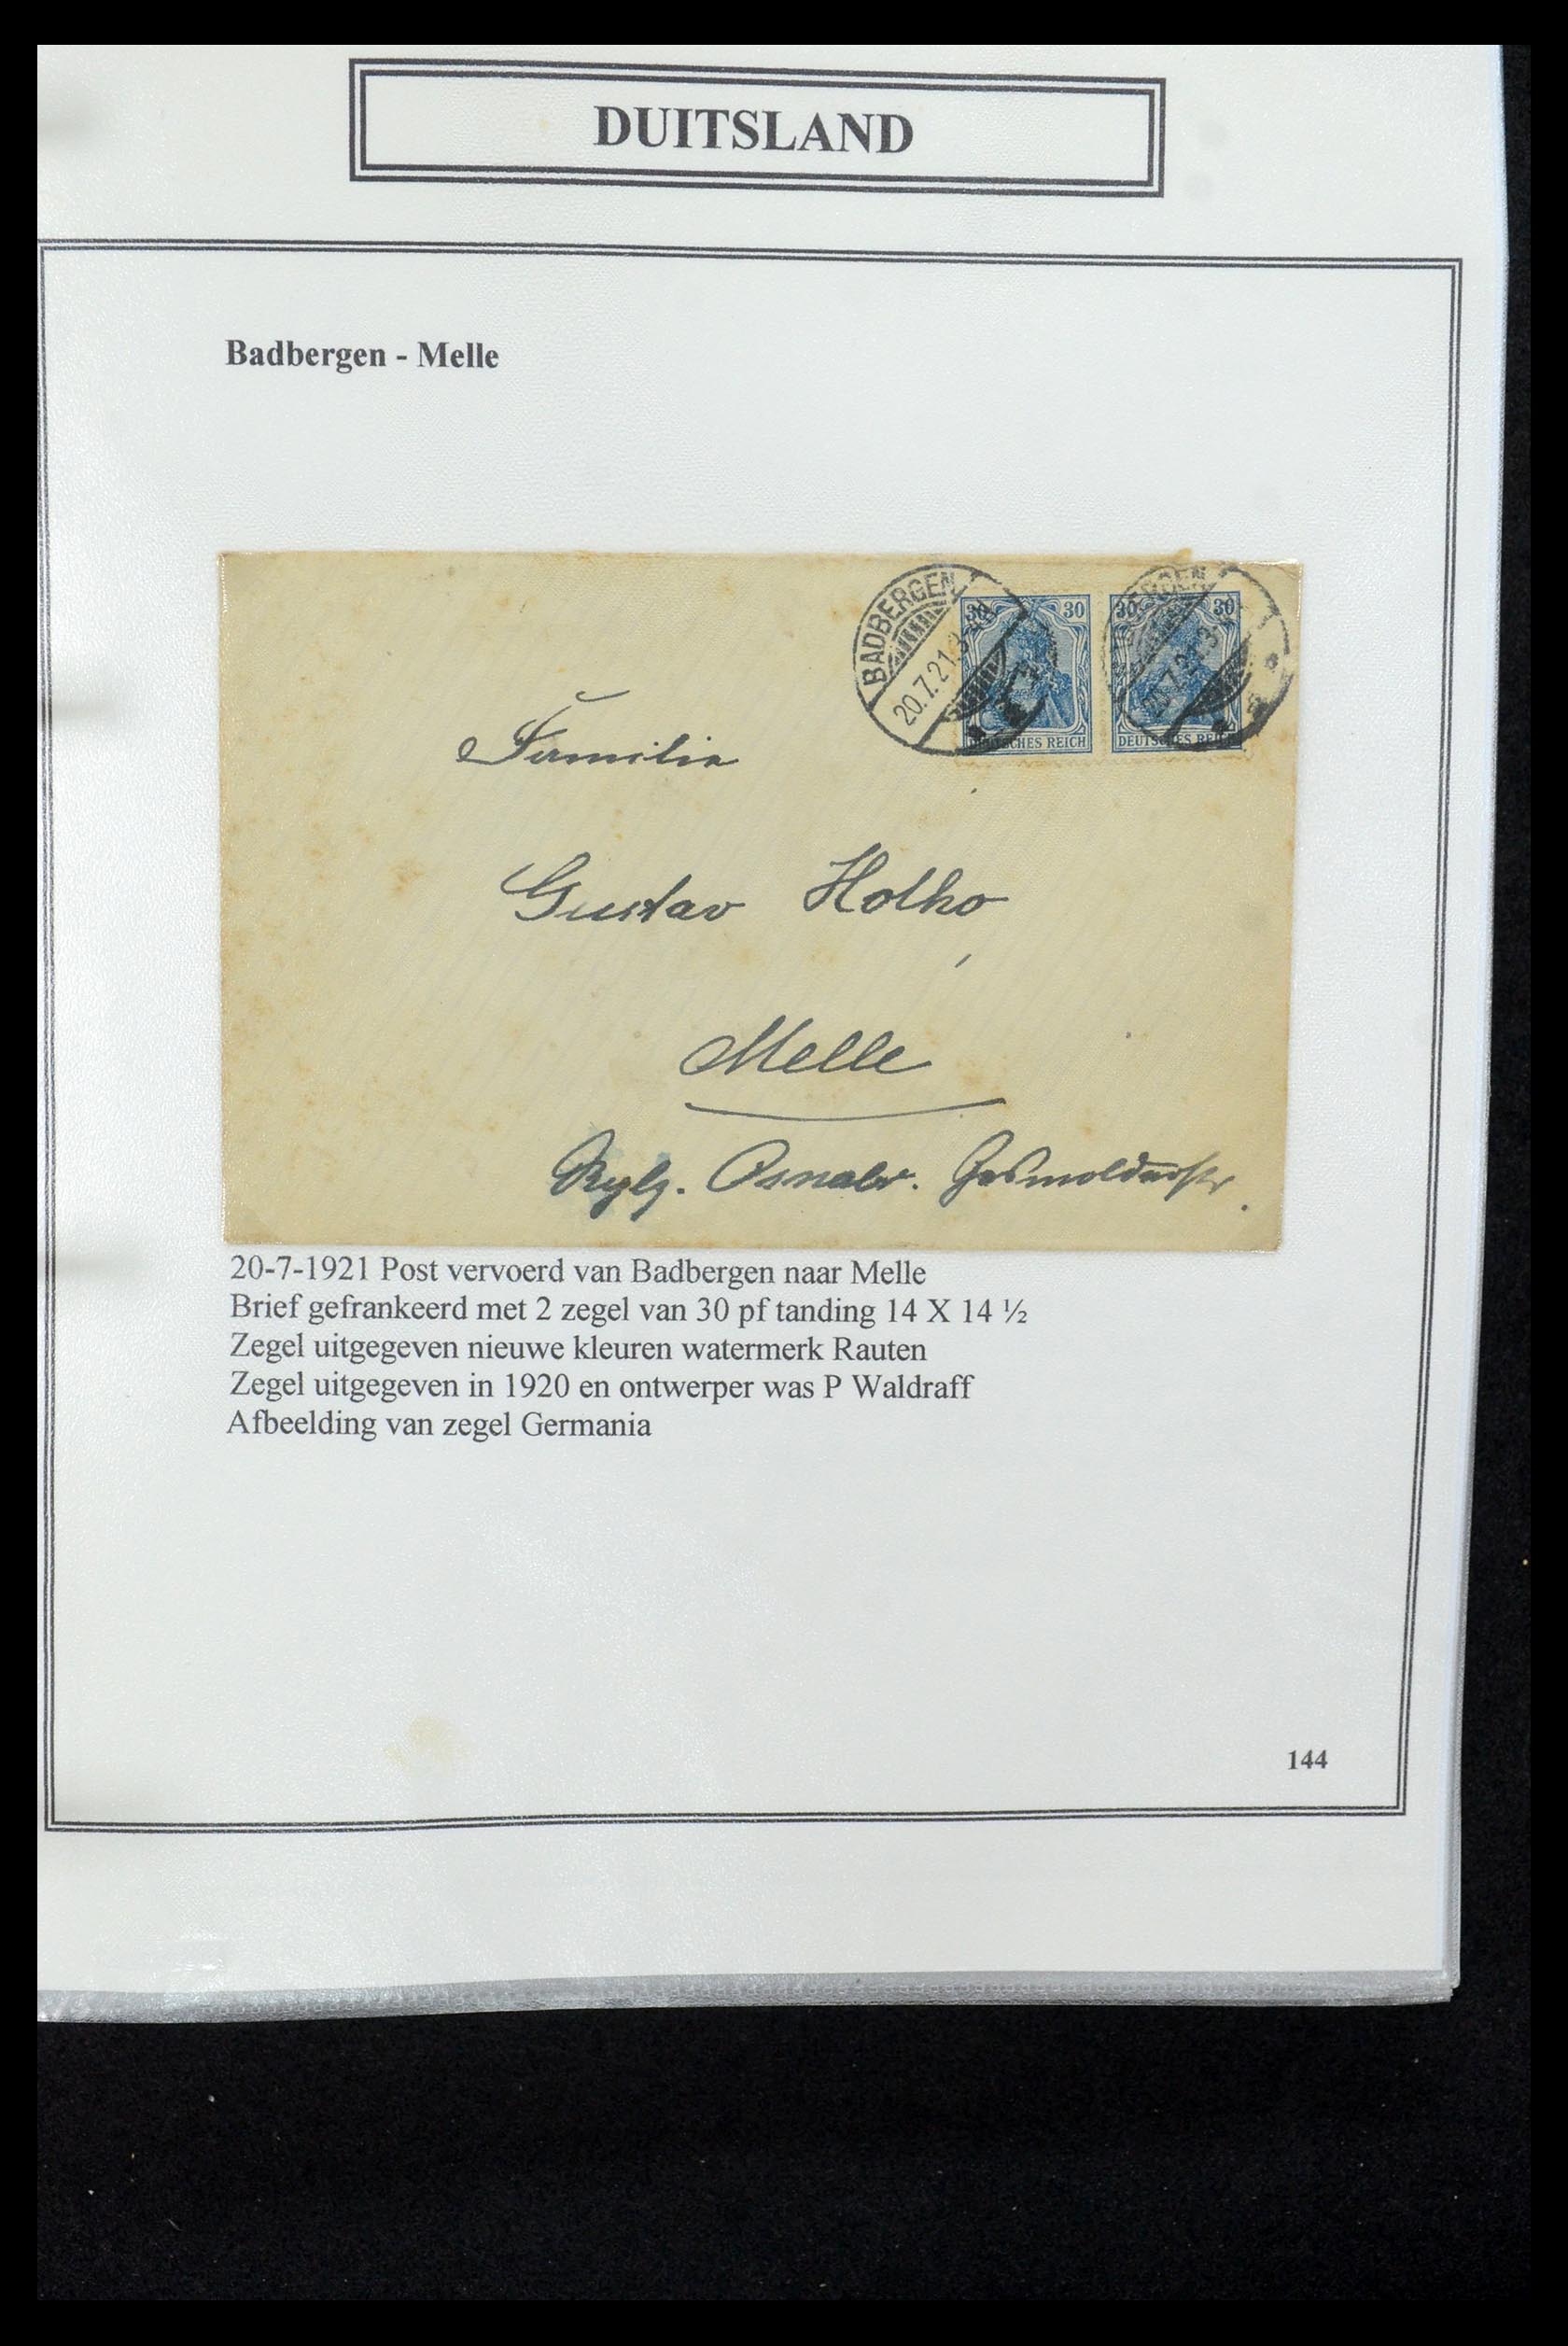 DUITSLAND
Badbergen - Melle
BADBERGEN
20.7.21.3-
30 30
DEUTSCHES REICH
BERGEN
30 30
DEUTSCHES REICH
Familie
Gustav Holho
Melle
Osnabr.
20-7-1921 Post vervoerd van Badbergen naar Melle
Brief gefrankeerd met 2 zegel van 30 pf tanding 14 X 14 ½
Zegel uitgegeven nieuwe kleuren watermerk Rauten
Zegel uitgegeven in 1920 en ontwerper was P Waldraff
Afbeelding van zegel Germania
144